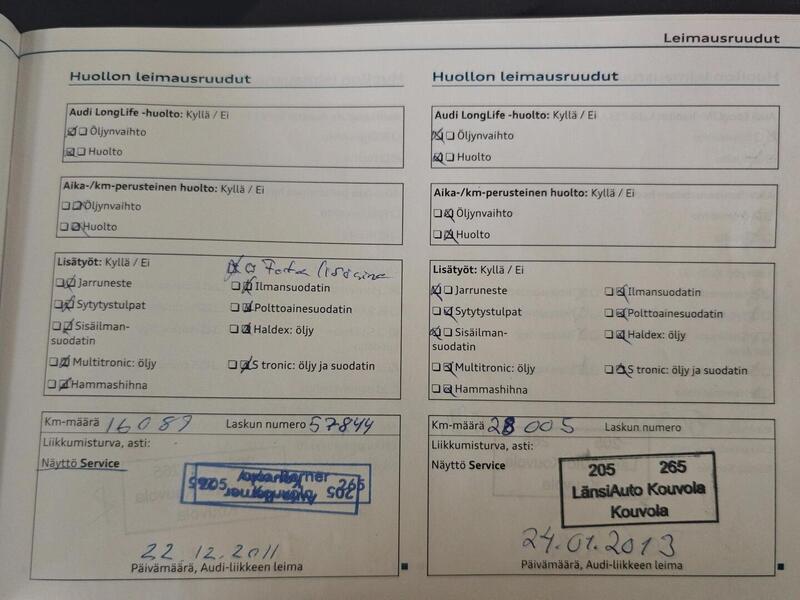 Leimausruudut
Huollon leimausruudut
Audi LongLife -huolto: Kyllä / Ei
Öljynvaihto
Huolto
Aika-/km-perusteinen huolto: Kyllä / Ei
Öljynvaihto
Huolto
Lisätyöt: Kyllä / Ei
Jarruneste
Ilmansuodatin
Sytytystulpat
Polttoainesuodatin
Sisäilman-
suodatin
Haldex: öljy
Multitronic: öljy
S tronic: öljy ja suodatin
Hammashihna
Km-määrä 16089
Laskun numero 57844
Liikkumisturva, asti:
Näyttö Service
265
205
22.12.2011
Päivämäärä, Audi-liikkeen leima
Huollon leimausruudut
Audi LongLife -huolto: Kyllä / Ei
Öljynvaihto
Huolto
Aika-/km-perusteinen huolto: Kyllä / Ei
Öljynvaihto
Huolto
Lisätyöt: Kyllä / Ei
Jarruneste
Ilmansuodatin
Sytytystulpat
Polttoainesuodatin
Sisäilman-
suodatin
Haldex: öljy
Multitronic: öljy
S tronic: öljy ja suodatin
Hammashihna
Km-määrä 28005
Laskun numero
Liikkumisturva, asti:
Näyttö Service
205 265
LänsiAuto Kouvola
Kouvola
24.01.2013
Päivämäärä, Audi-liikkeen leima